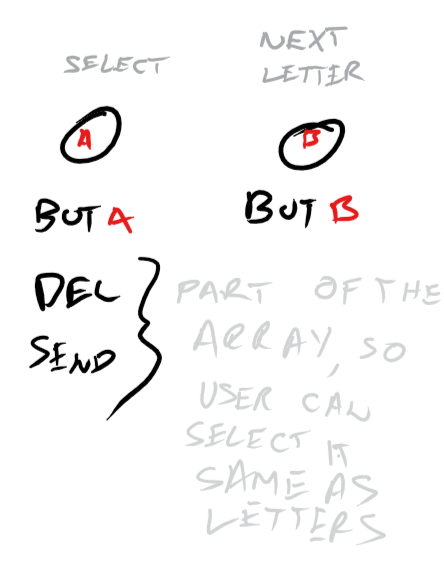 SELECT
NEXT
LETTER
A
B
BUT A
BUT B
DEL
SEND
PART OF THE
ARRAY, SO
USER CAN
SELECT IT
SAME AS
LETTERS